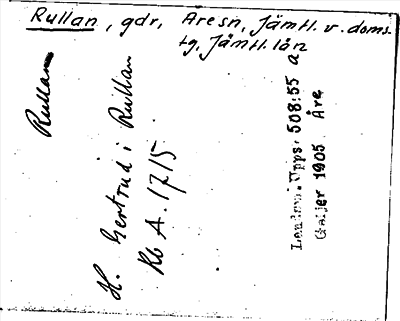 Rullan, gdr, Åresn, Jämtl. v. doms.
tg, Jämtl. län
Rullan
H. Gertrud i Rullan
Rb A. 1715
Landsm. Upps. 508:55 a
Geijer 1905 Åre